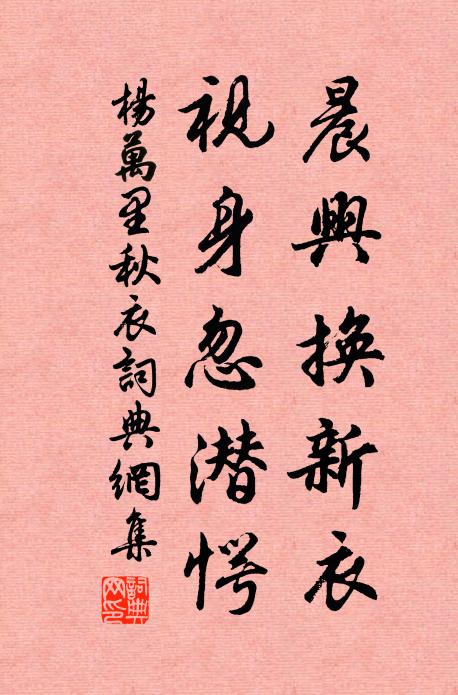 晨興換新衣
視身忽潜愕
楊萬里秋衣詞典網集
詞典網印